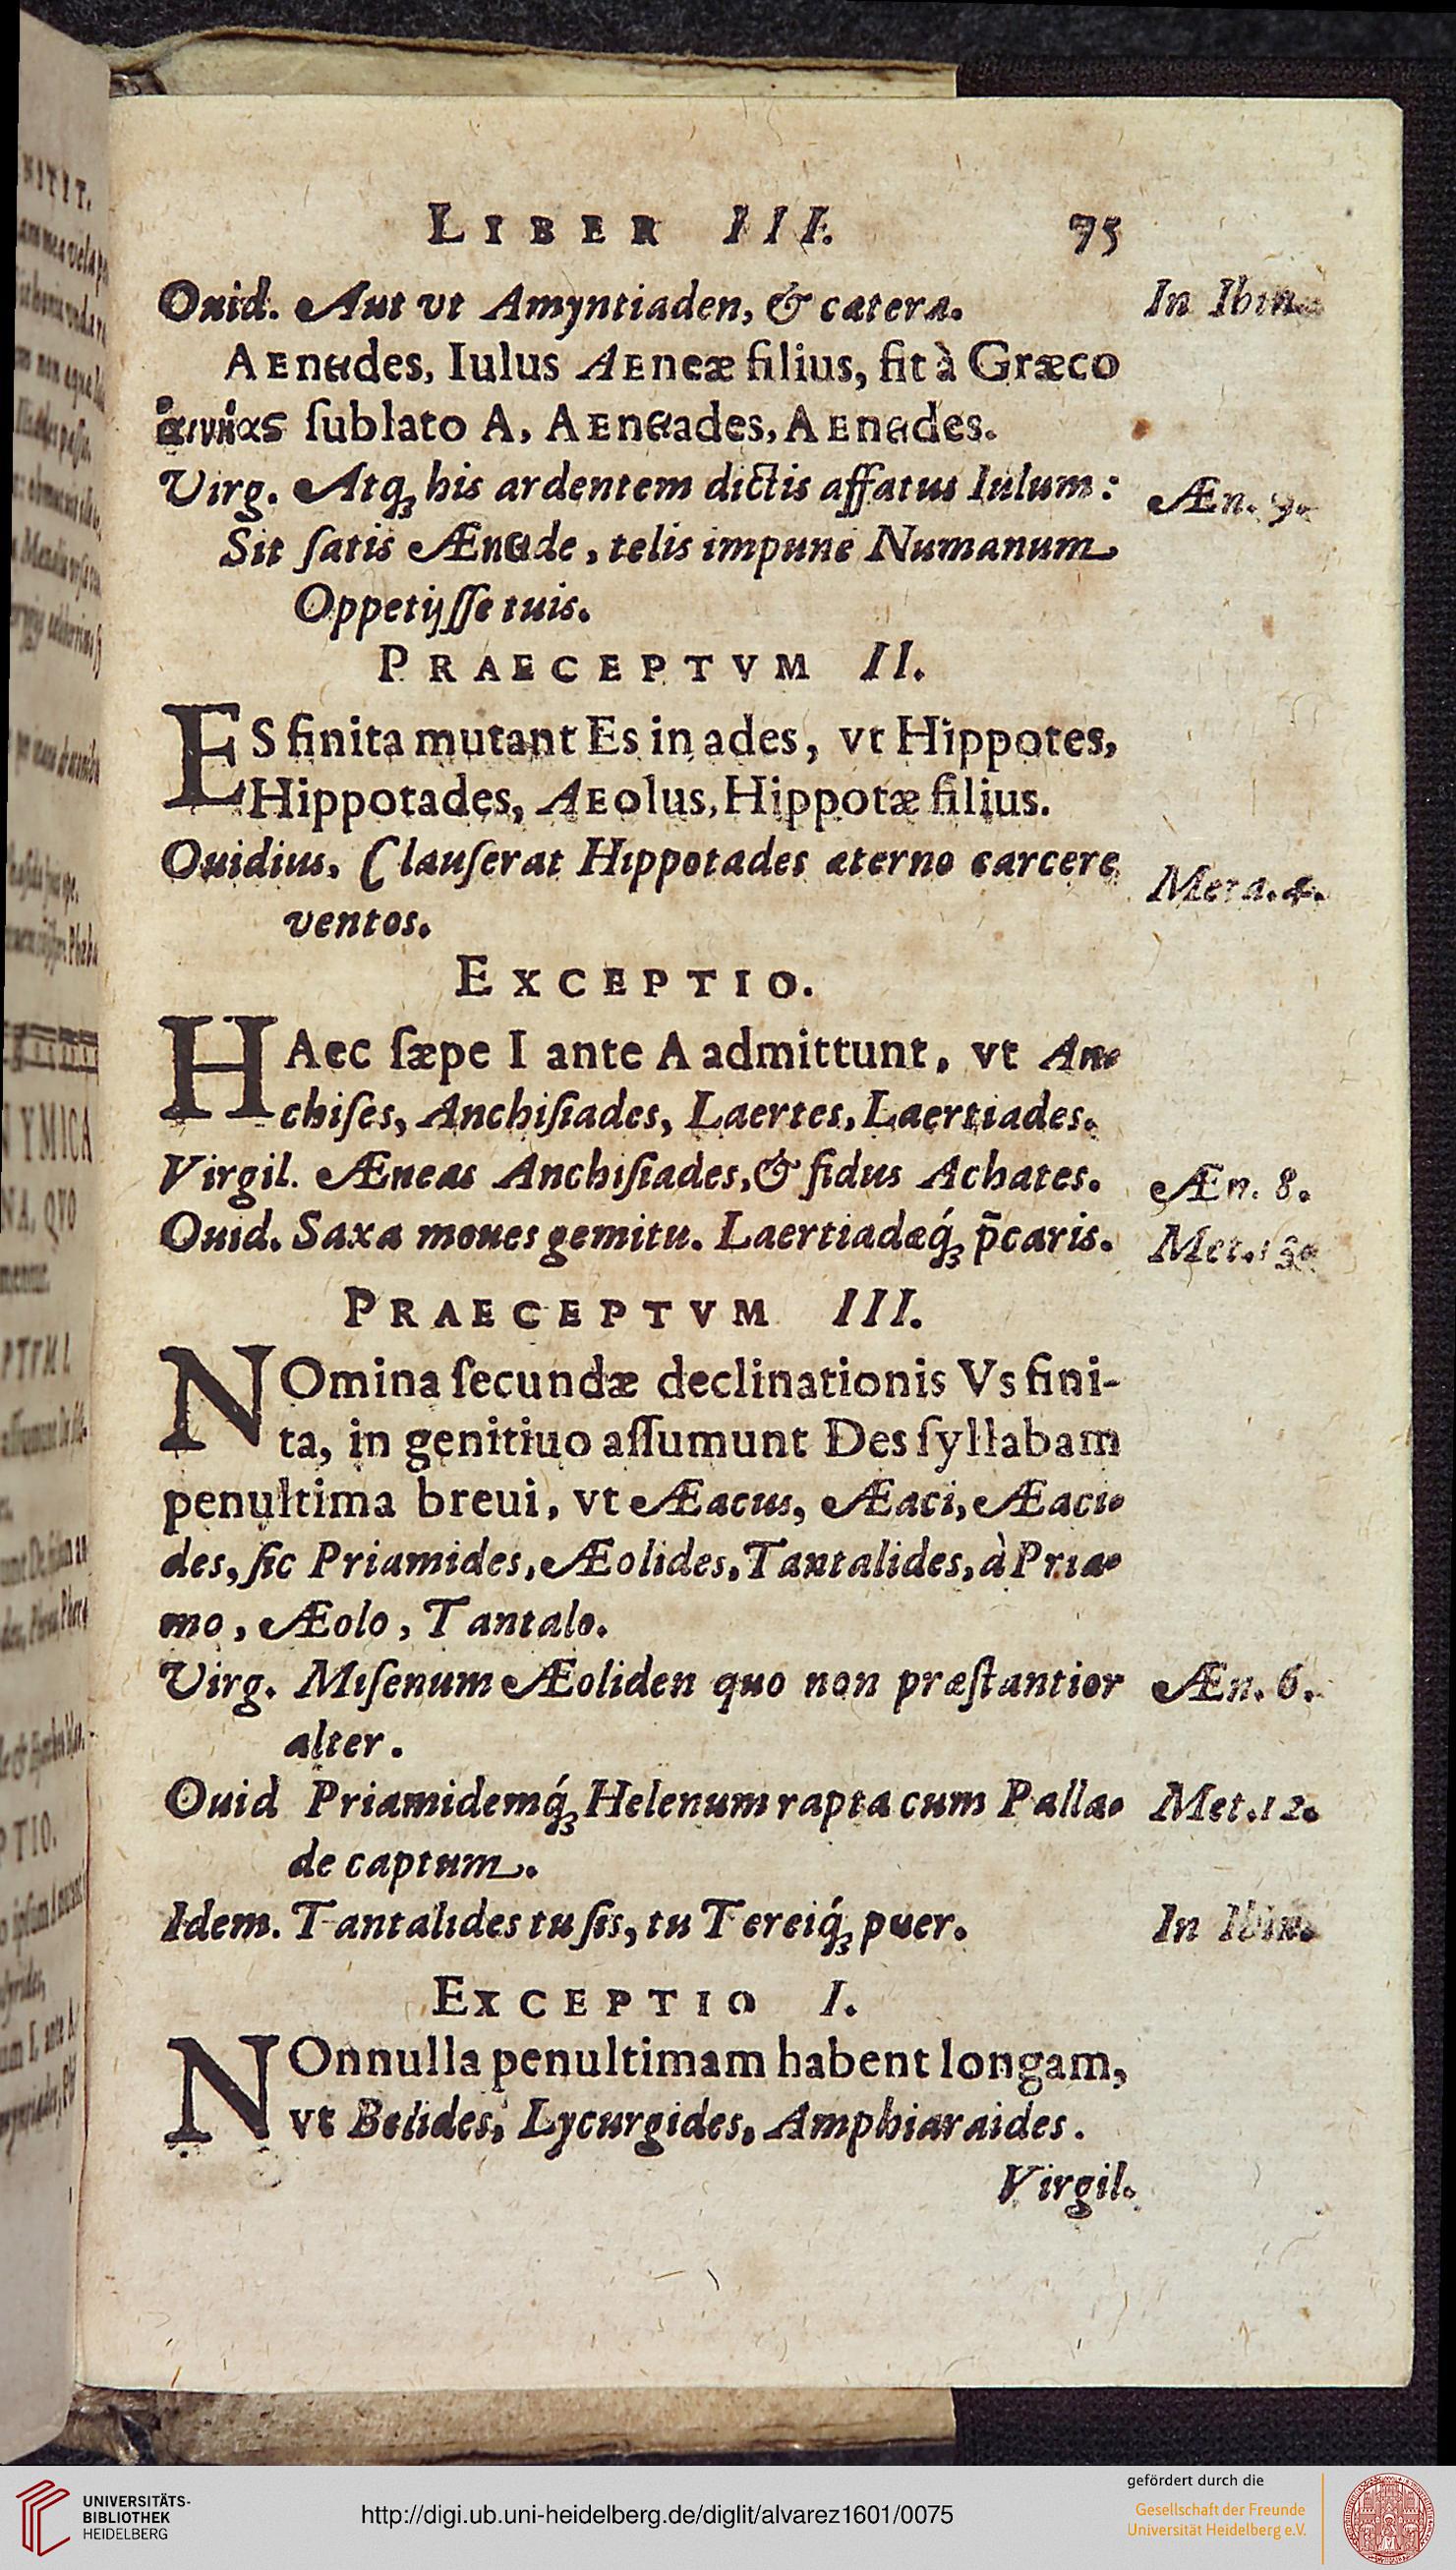 LIBER III. 75
Ouid. Aut vt Amyntiaden, & cætera. In Ibin.
AEneides, Iulus AEneæ filius, fit à Græco
ſublato A, AEneiades, AEneides.
Virg. Atq; his ardentem dictis affatus Iulum: Æn. 9.
Sit ſatis Æneide, telis impune Numanum
Oppetijſſe tuis.
PRAECEPTVM II.
ES finita mutant Es in ades, vt Hippotes,
Hippotades, AEolus, Hippotæ filius.
Ouidius. Clauſerat Hippotades æterno carcere Meta. 4.
ventos.
EXCEPTIO.
HAec ſæpe I ante A admittunt, vt An-
chiſes, Anchiſiades, Laertes, Laertiades.
Virgil. Æneas Anchiſiades, & fidus Achates. Æn. 8.
Ouid. Saxa moues gemitu. Laertiadæq́; p̃caris. Met. 13.
PRAECEPTVM III.
NOmina ſecundæ declinationis Vs fini-
ta, in genitiuo aſſumunt Des ſyllabam
penultima breui, vt Æacus, Æaci, Æaci-
des, ſic Priamides, Æolides, Tantalides, à Pria-
mo, Æolo, Tantalo.
Virg. Miſenum Æoliden quo non præſtantior Æn. 6.
alter.
Ouid Priamidemq́; Helenum rapta cum Palla- Met. 12.
de captum.
Idem. Tantalides tu ſis, tu Tereiq́; puer. In Ibin.
EXCEPTIO I.
NOnnulla penultimam habent longam,
vt Belides, Lycurgides, Amphiaraides.
Virgil.
UNIVERSITÄTS-
BIBLIOTHEK
HEIDELBERG
http://digi.ub.uni-heidelberg.de/diglit/alvarez1601/0075
gefördert durch die
Gesellschaft der Freunde
Universität Heidelberg e.V.